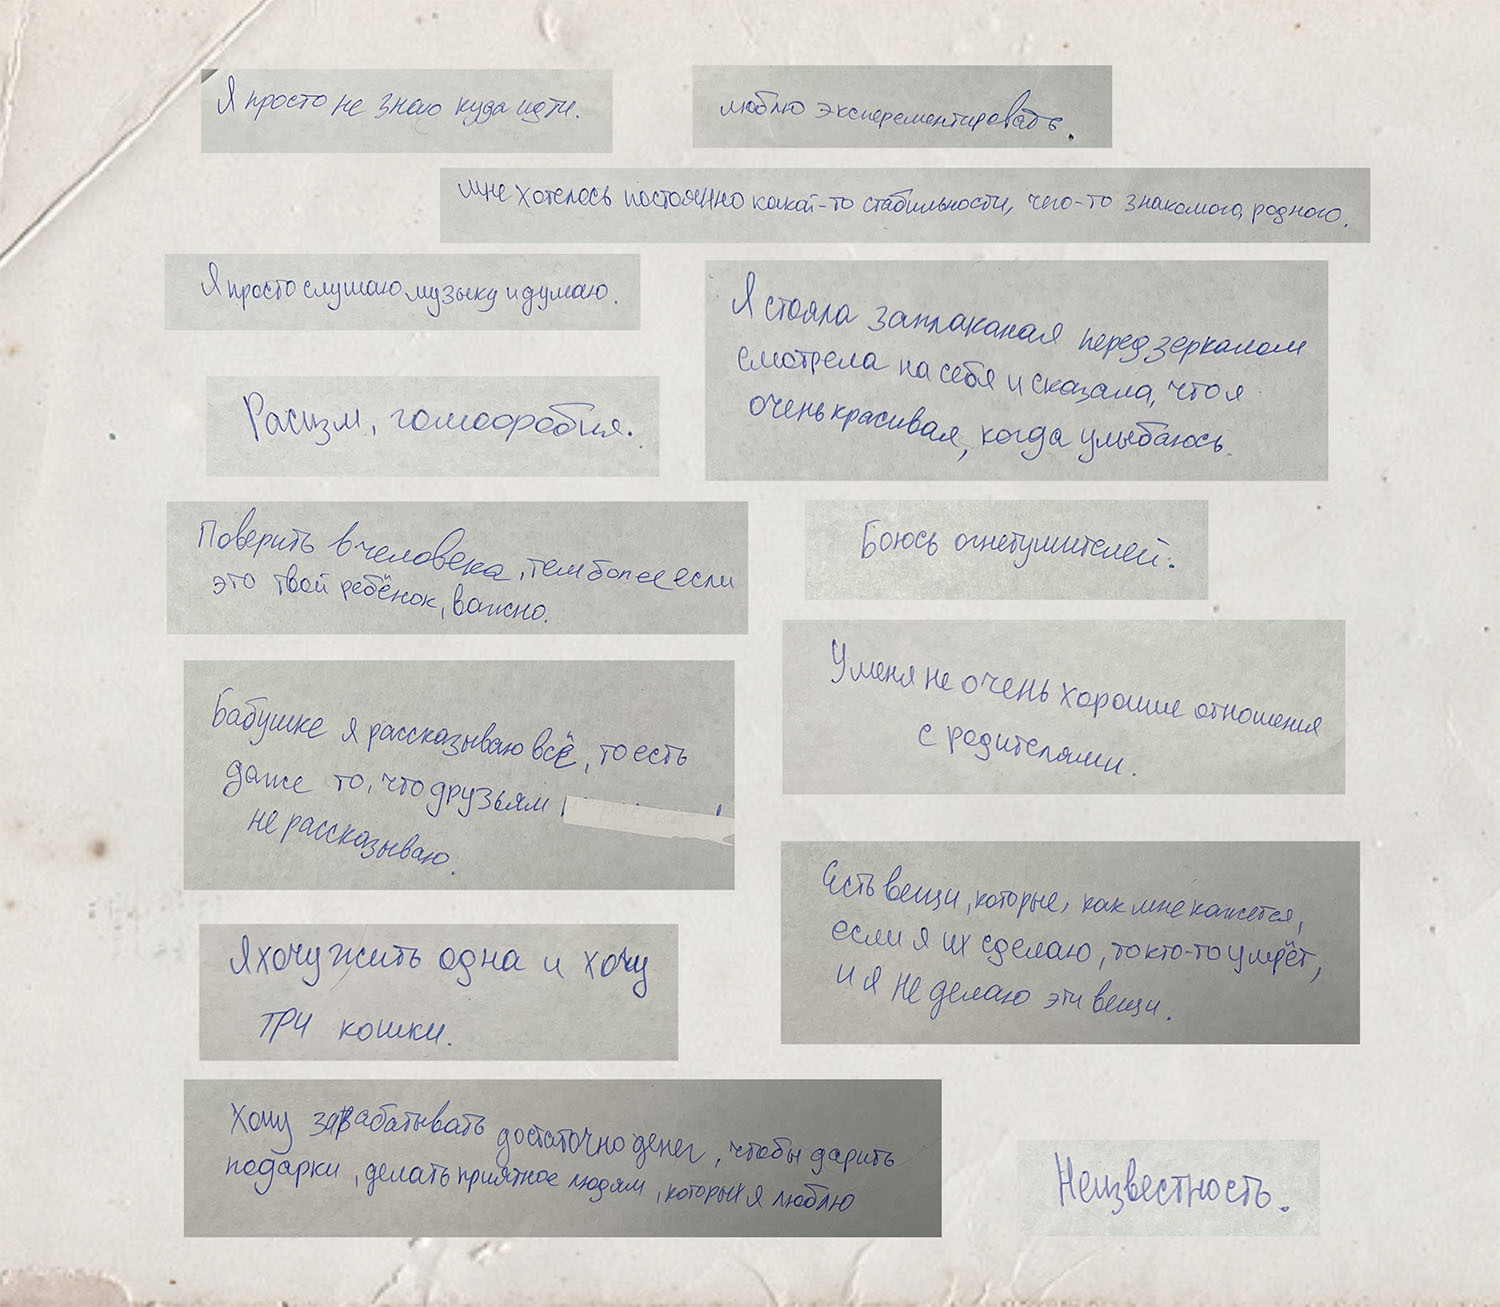 Я просто не знаю куда идти.
люблю эксперементировать.
мне хотелось постоянно какой-то стабильности, чего-то знакомого, родного.
Я просто слушаю музыку и думаю.
Я стояла заплаканая перед зеркалом
смотрела на себя и сказала, что я
очень красивая, когда улыбаюсь.
Расизм, гомофобия.
Поверить в человека, тем более если
это твой ребёнок, важно.
Боюсь огнетушителей.
У меня не очень хорошие отношения
с родителями.
Бабушке я рассказываю всё, то есть
даже то, что друзьям
не рассказываю.
Есть вещи, которые, как мне кажется,
если я их сделаю, то кто-то умрёт,
и я не делаю эти вещи.
Я хочу жить одна и хочу
три кошки.
Хочу зарабатывать достаточно денег, чтобы дарить
подарки, делать приятное людям, которых я люблю
Неизвестность.